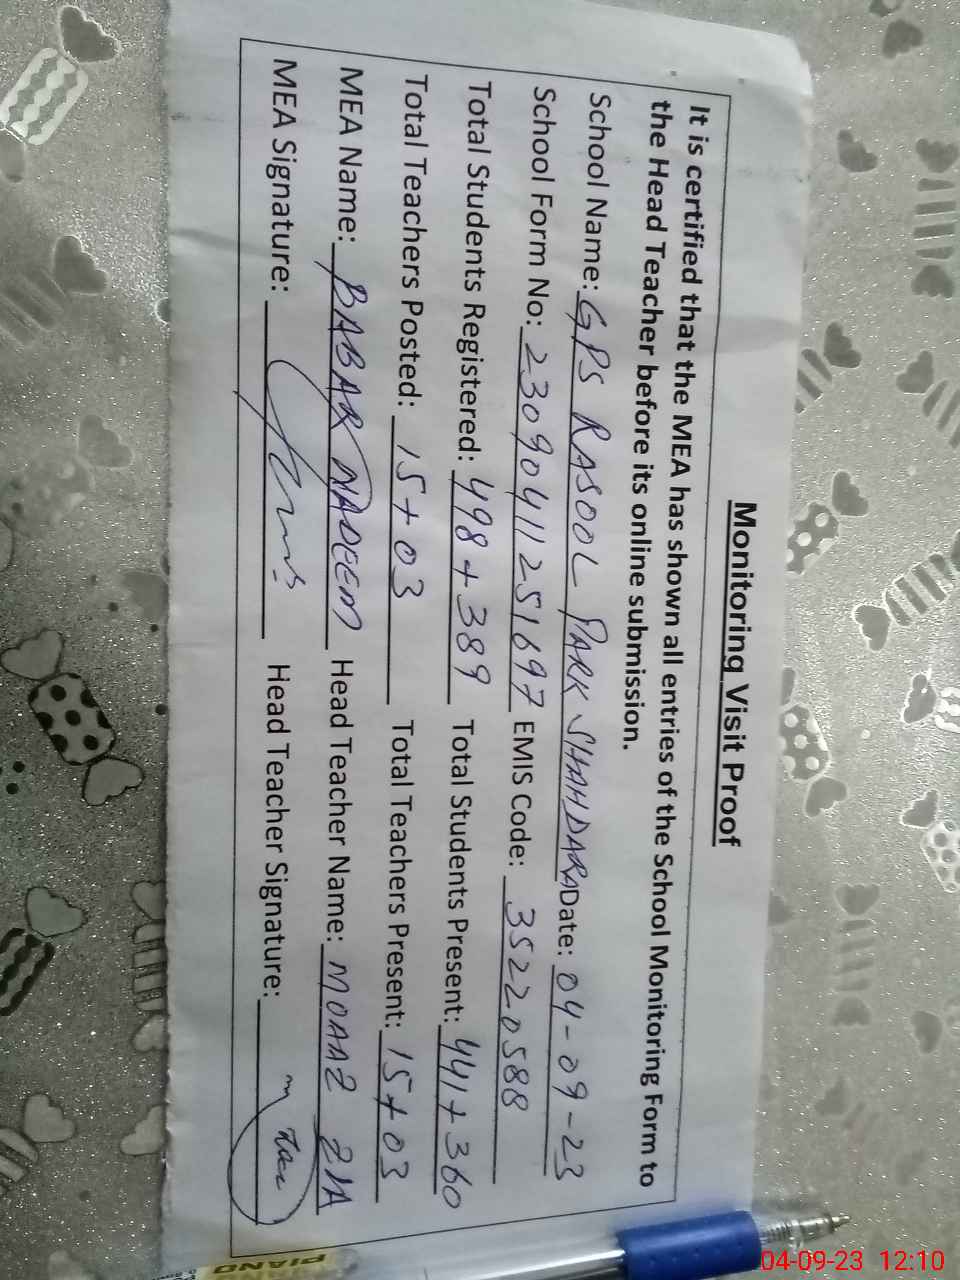 Monitoring Visit Proof
It is certified that the MEA has shown all entries of the School Monitoring Form to
the Head Teacher before its online submission.
School Name: GPS RASOOL PARK SHAHDARA Date: 04-09-23
School Form No: 23090411251697 EMIS Code: 35220588
Total Students Registered: 498+389 Total Students Present: 441+360
Total Teachers Posted: 15+03 Total Teachers Present: 15+03
MEA Name: BABAR NADEEM Head Teacher Name: MOAAZ ZIA
MEA Signature: Head Teacher Signature:
PIANO
04-09-23 12:10